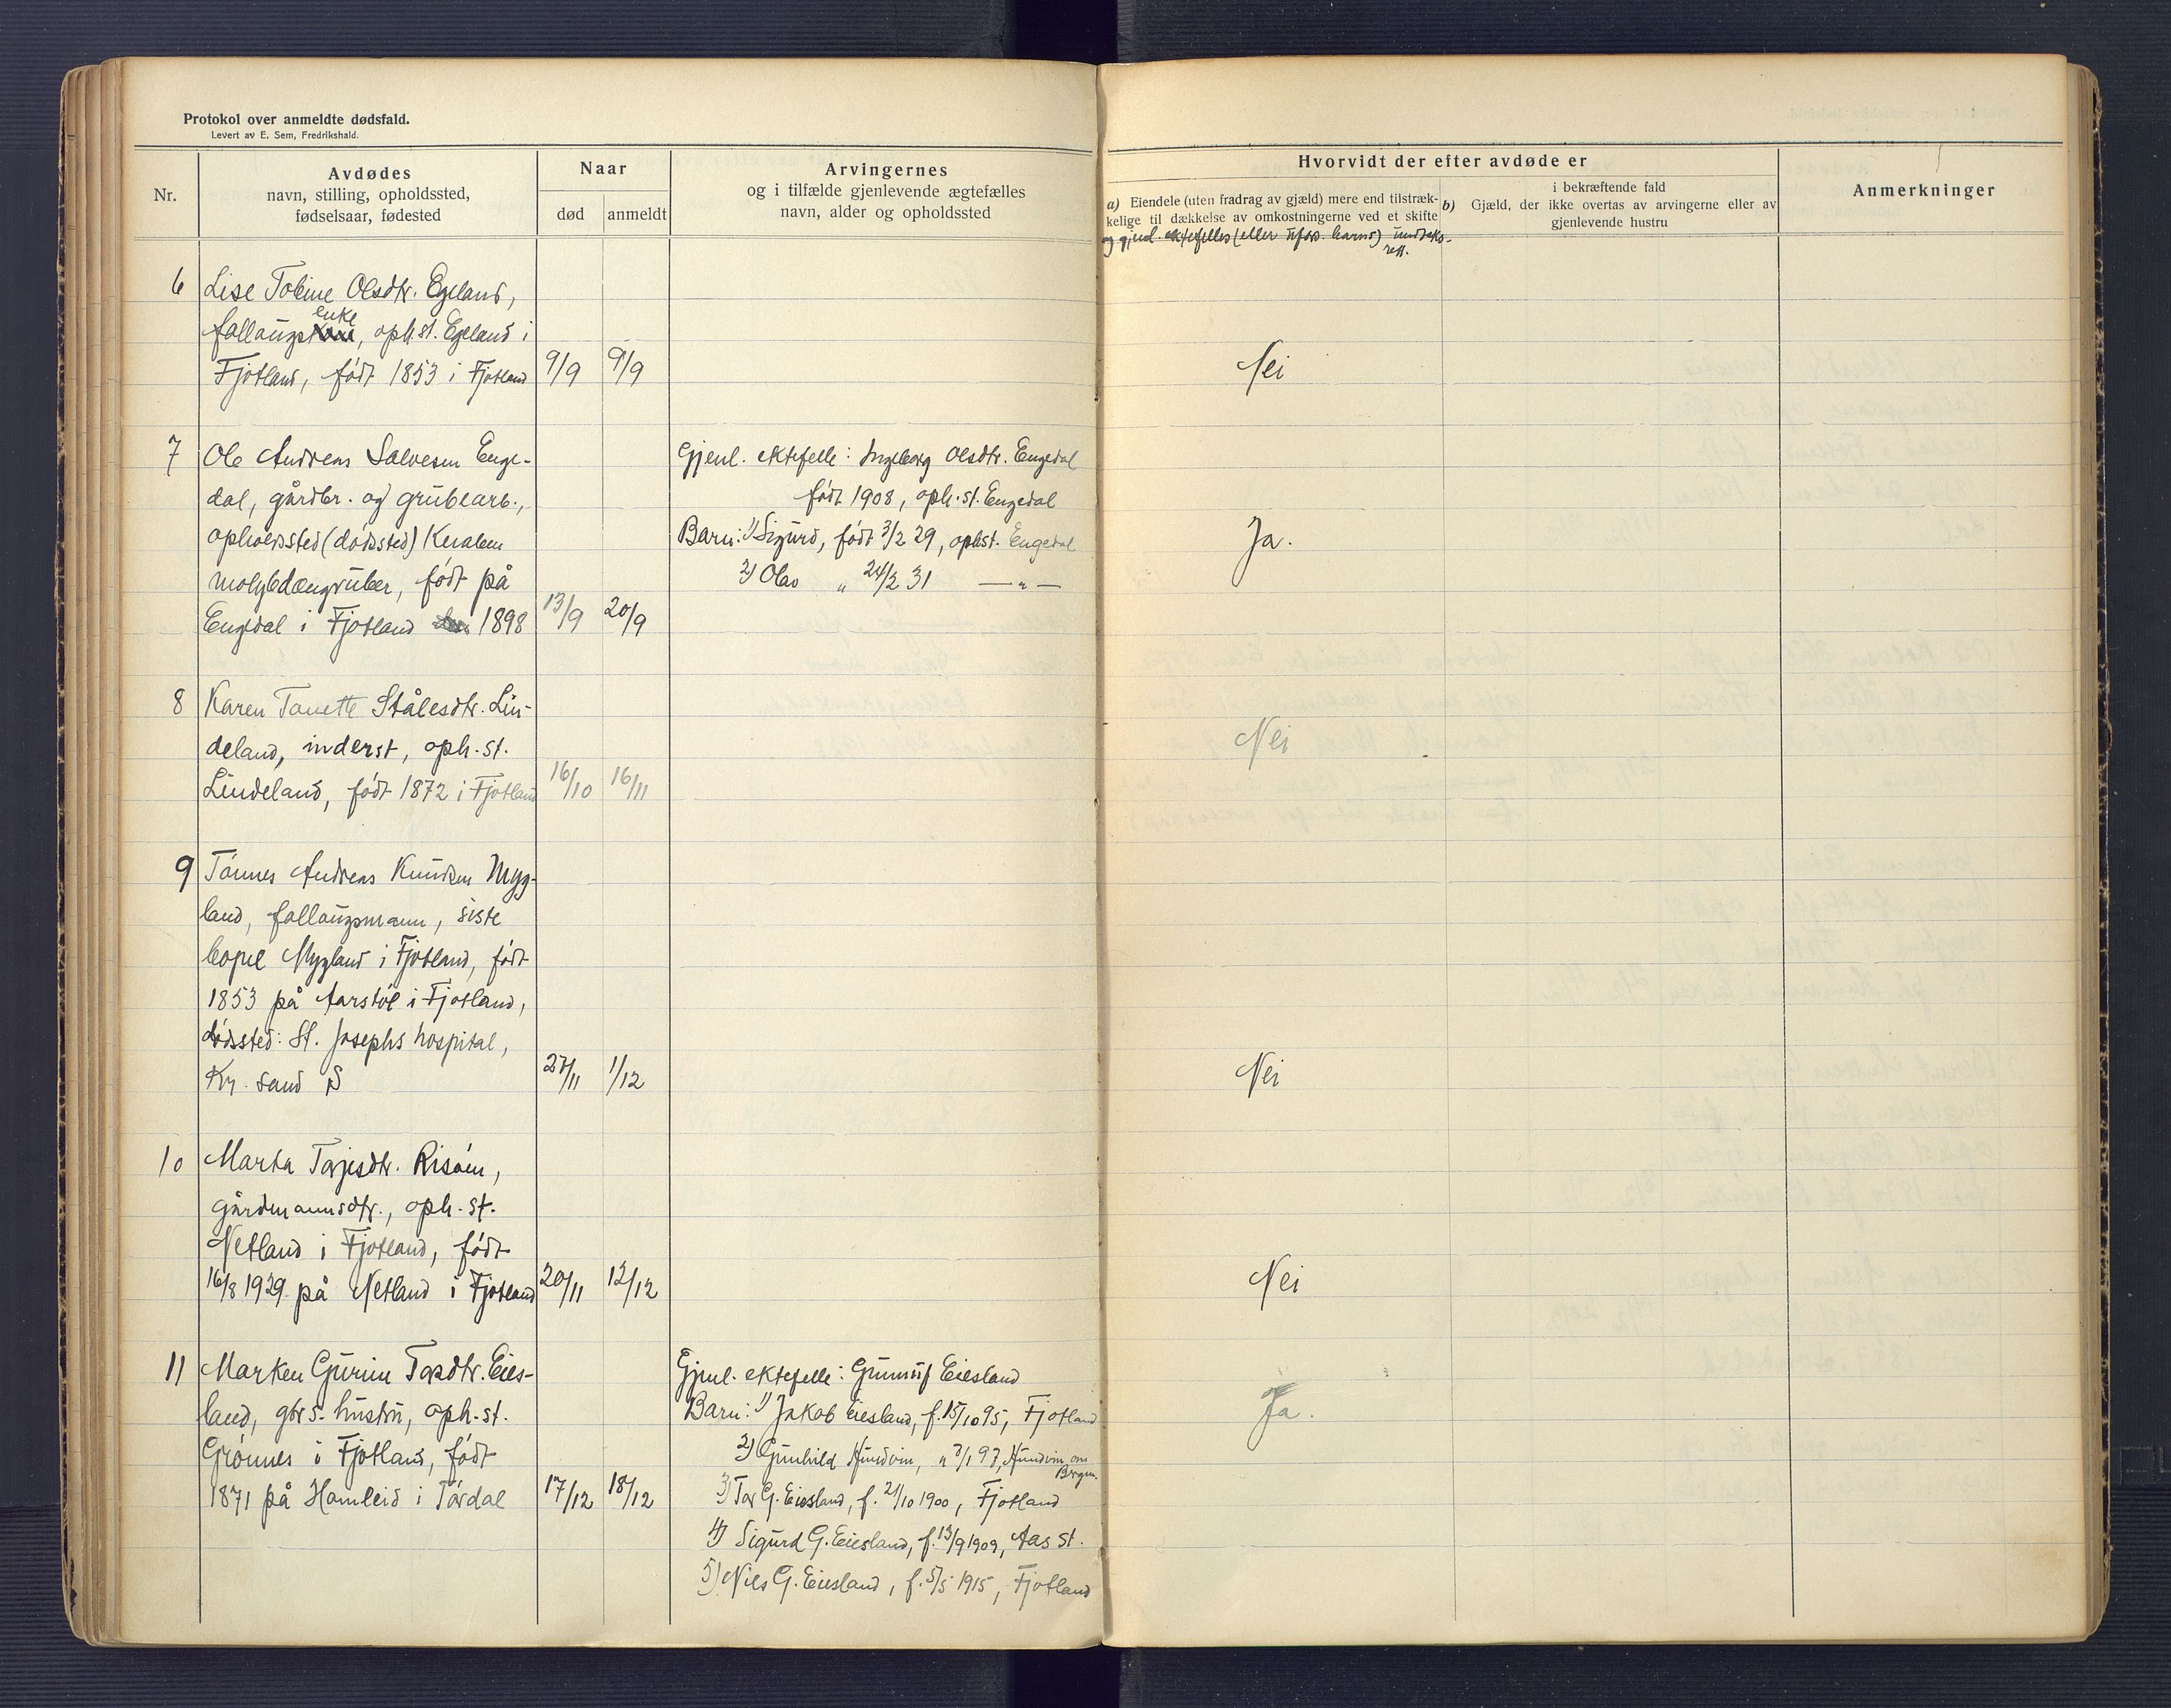 Protokol over anmeldte dødsfald.
Levert av E. Sem, Fredrikshald.
Nr.
Avdødes
navn, stilling, opholdssted,
fødselsaar, fødested
Naar
død
anmeldt
Arvingernes
og i tilfælde gjenlevende ægtefælles
navn, alder og opholdssted
Hvorvidt der efter avdøde er
a) Eiendele (uten fradrag av gjæld) mere end tilstræk-
kelige til dækkelse av omkostningerne ved et skifte
og gjenl. ektefelles (eller ufors. barns)
rett.
b)
i bekræftende fald
Gjæld, der ikke overtas av arvingerne eller av
gjenlevende hustru
Anmerkninger
6
Lise Tobine Olsdtr. Egeland,
enke
fallaugs, oph.st. Egeland i
Fjotland, født 1853 i Fjotland
9/9
9/9
Nei
7
Ole Andreas Salvesen Enge-
dal, gårdbr. og grubearb.,
opholdssted (dødssted) Knaben
molybdængruber, født på
Engedal i Fjotland 1898
13/9
20/9
Gjenl. ektefelle: Ingeborg Olsdtr. Engedal
født 1908, oph.st. Engedal
Barn: 1) Sigurd, født 3/2 29, ophst. Engedal
2) Olav " 24/2 31 — " —
Ja.
8
Karen Tonette Stålesdtr. Lin-
deland, inderst, oph.st.
Lindeland, født 1872 i Fjotland
16/10
16/11
Nei
9
Tønnes Andreas Knudsen Myg-
land, fallaugsmann, siste
bopel Mygland i Fjotland, født
1853 på Aarstøl i Fjotland,
dødssted: St. Josephs hospital,
Kr. sand S
27/11
1/12
Nei
10
Marta Torjesdtr. Risøen,
gårdmannsdtr., oph.st.
Netland i Fjotland, født
16/8 1929 på Netland i Fjotland
20/11
12/12
Nei
11
Marken Gurine Torsdtr. Eies-
land, gbrs. hustru, oph.st.
Grønnes i Fjotland, født
1871 på Homleid i Tørdal
17/12
18/12
Gjenl. ektefelle: Gunnuf Eiesland
Barn: 1) Jakob Eiesland, f. 15/10 95, Fjotland
2) Gunhild Hundvin, " 3/1 97, Hundvin om
Bergen.
3) Tor G. Eiesland, f. 21/10 1900, Fjotland
4) Sigurd G. Eiesland, f. 13/9 1909, Aas st.
5) Nils G. Eiesland, f. 5/5 1915, Fjotland
Ja.